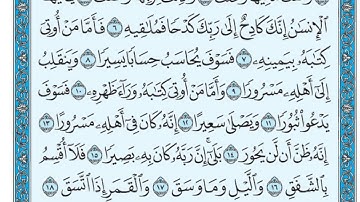 ٱلۡإِنسَٰنُ إِنَّكَ كَادِحٌ إِلَىٰ رَبِّكَ كَدۡحٗا فَمُلَٰقِيهِ ٦ فَأَمَّا مَنۡ أُوتِيَ
كِتَٰبَهُۥ بِيَمِينِهِۦ ٧ فَسَوۡفَ يُحَاسَبُ حِسَابٗا يَسِيرٗا ٨ وَيَنقَلِبُ
إِلَىٰٓ أَهۡلِهِۦ مَسۡرُورٗا ٩ وَأَمَّا مَنۡ أُوتِيَ كِتَٰبَهُۥ وَرَآءَ ظَهۡرِهِۦ ١٠ فَسَوۡفَ
يَدۡعُواْ ثُبُورٗا ١١ وَيَصۡلَىٰ سَعِيرًا ١٢ إِنَّهُۥ كَانَ فِيٓ أَهۡلِهِۦ مَسۡرُورًا ١٣
إِنَّهُۥ ظَنَّ أَن لَّن يَحُورَ ١٤ بَلَىٰٓۚ إِنَّ رَبَّهُۥ كَانَ بِهِۦ بَصِيرٗا ١٥ فَلَآ أُقۡسِمُ
بِٱلشَّفَقِ ١٦ وَٱلَّيۡلِ وَمَا وَسَقَ ١٧ وَٱلۡقَمَرِ إِذَا ٱتَّسَقَ ١٨